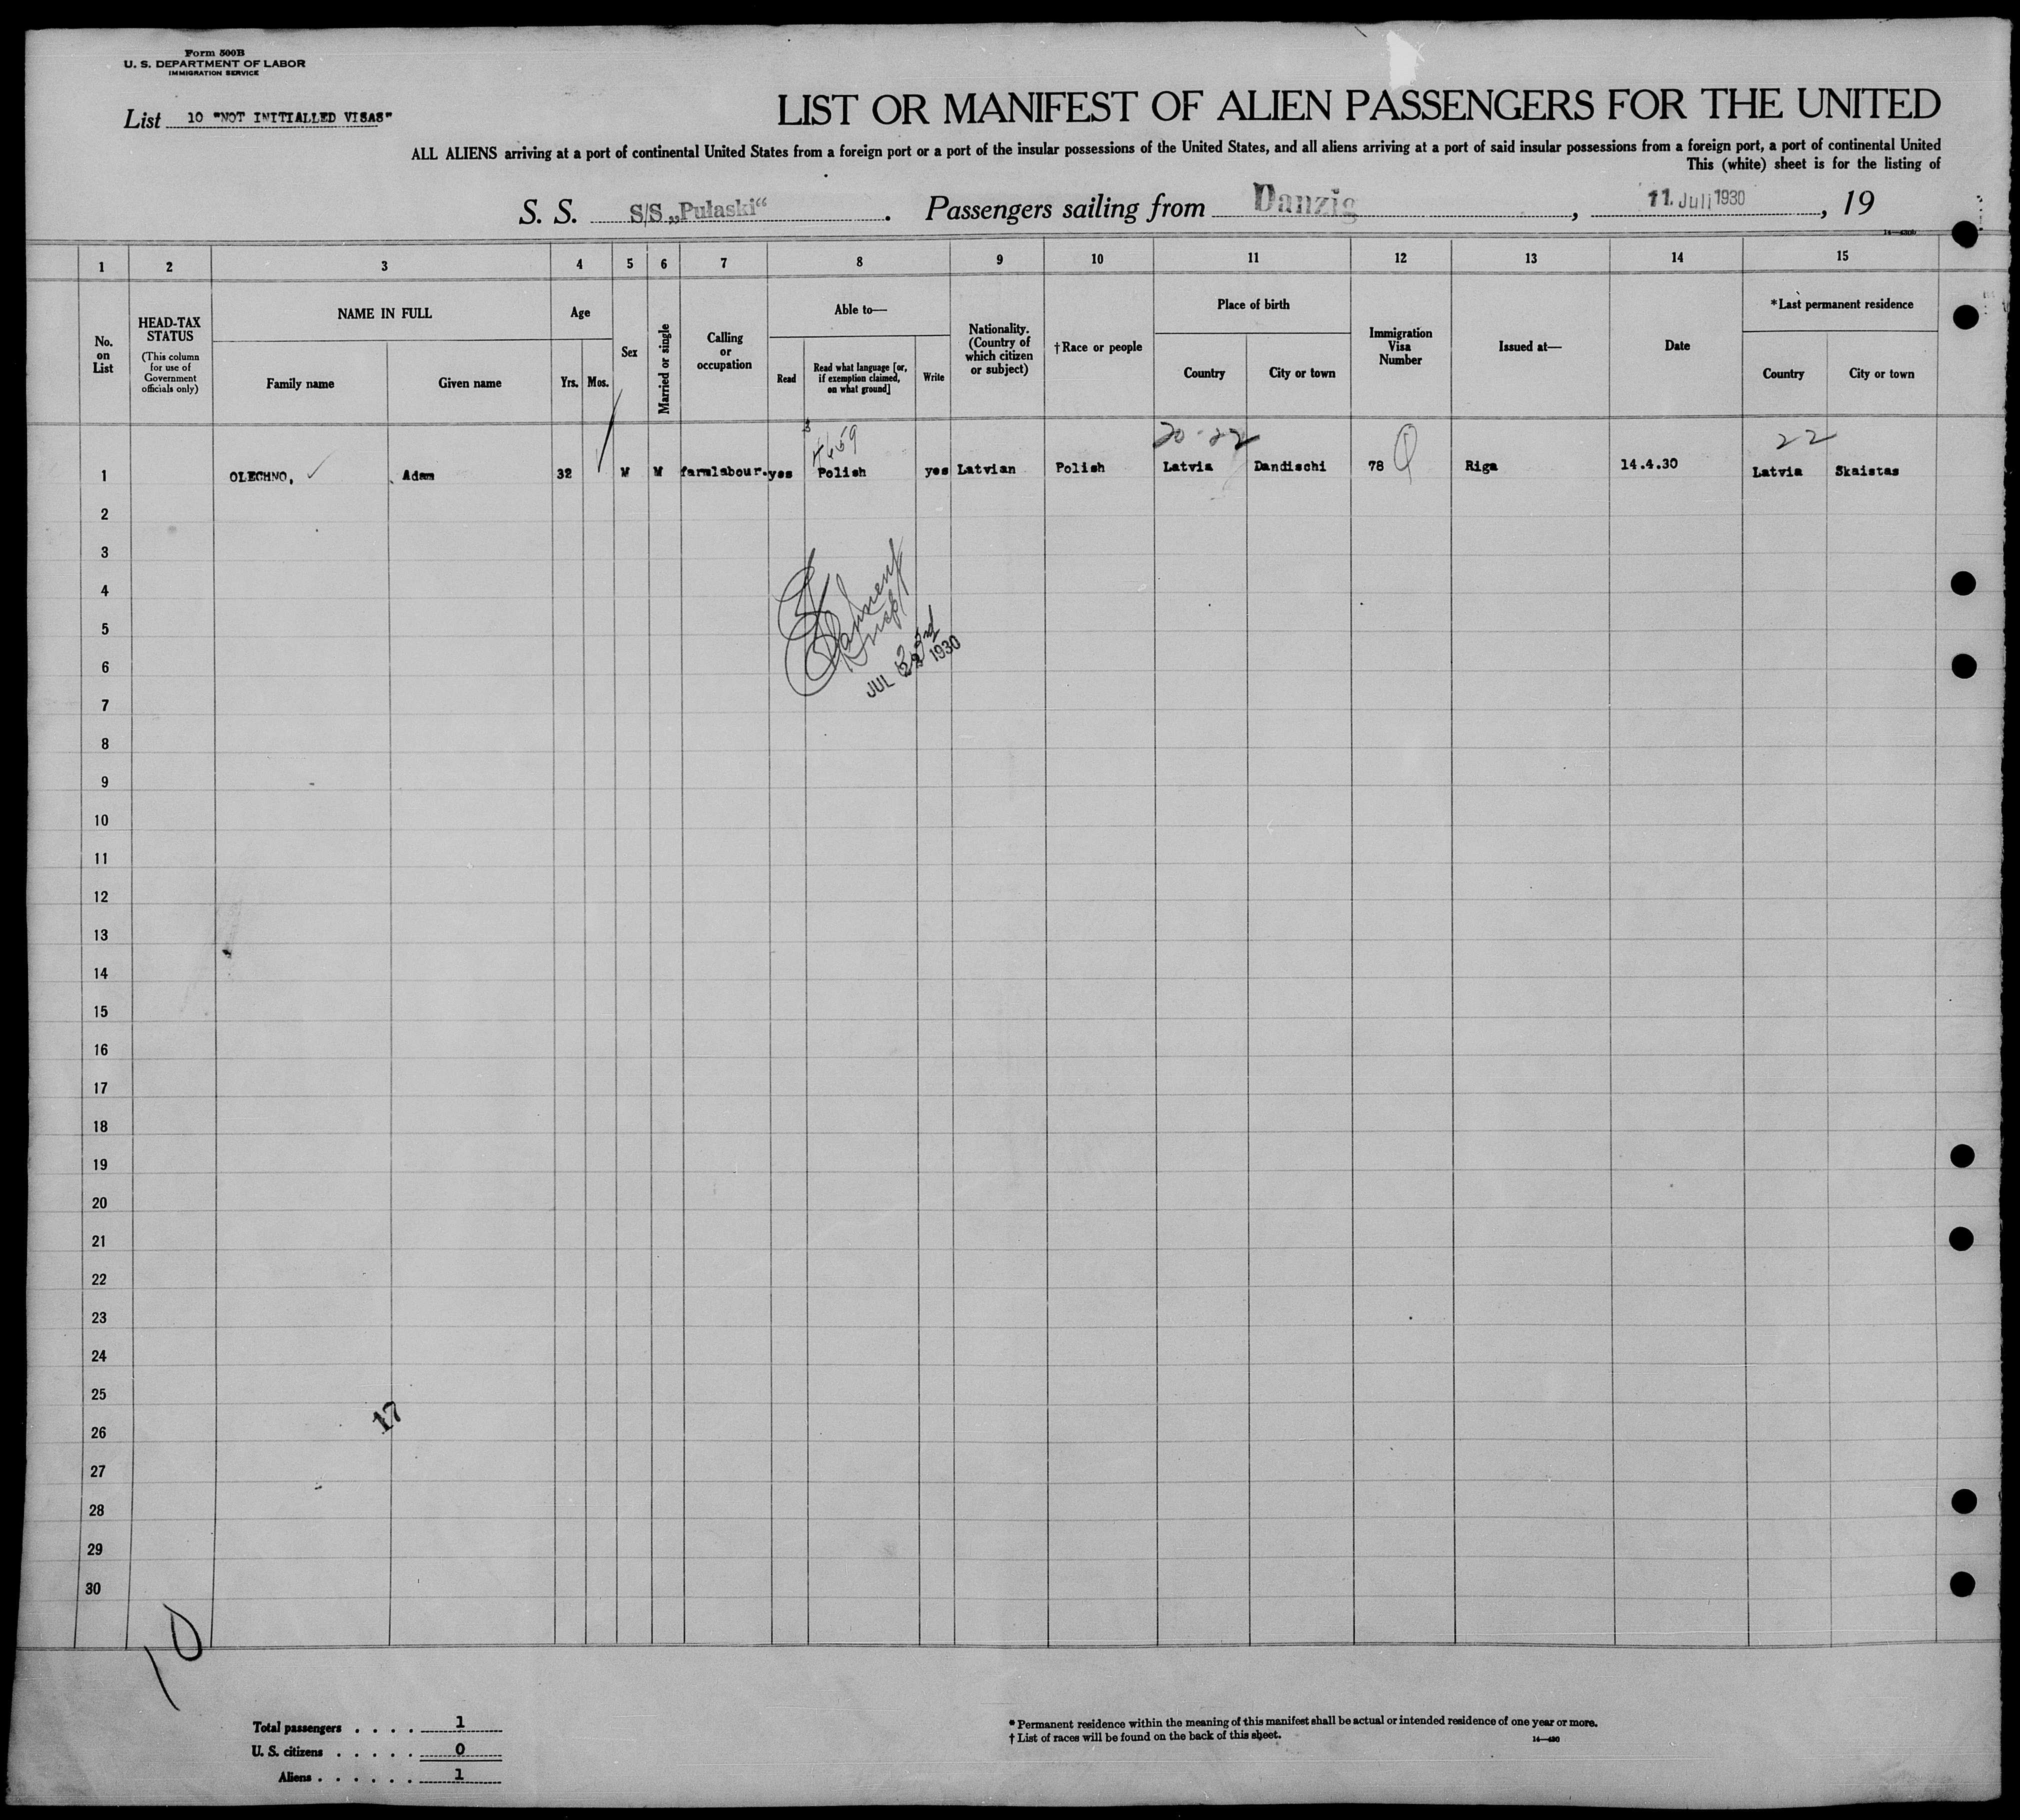 Form 500B
U. S. DEPARTMENT OF LABOR
IMMIGRATION SERVICE
List 10 "NOT INITIALLED VISAS"
LIST OR MANIFEST OF ALIEN PASSENGERS FOR THE UNITED
ALL ALIENS arriving at a port of continental United States from a foreign port or a port of the insular possessions of the United States, and all aliens arriving at a port of said insular possessions from a foreign port, a port of continental United
This (white) sheet is for the listing of
S. S. S/S „Pułaski“. Passengers sailing from Danzig, 11. Juli 1930, 19
1 2 3 4 5 6 7 8 9 10 11 12 13 14 15
No. on List
HEAD-TAX STATUS
(This column for use of Government officials only)
NAME IN FULL
Family name
Given name
Age
Yrs.
Mos.
Sex
Married or single
Calling or occupation
Able to—
Read
Read what language [or, if exemption claimed, on what ground]
Write
Nationality. (Country of which citizen or subject)
†Race or people
Place of birth
Country
City or town
Immigration Visa Number
Issued at—
Date
*Last permanent residence
Country
City or town
20-22
22
1 OLECHNO, Adam 32 M M farmlabour. yes Polish yes Latvian Polish Latvia Dandischi 78 Riga 14.4.30 Latvia Skaistas
2
3
4
5
6
JUL 1930
7
8
9
10
11
12
13
14
15
16
17
18
19
20
21
22
23
24
25
17
26
27
28
29
30
10
Total passengers . . . . 1
U. S. citizens . . . . . 0
Aliens . . . . . . 1
* Permanent residence within the meaning of this manifest shall be actual or intended residence of one year or more.
† List of races will be found on the back of this sheet.
14—430